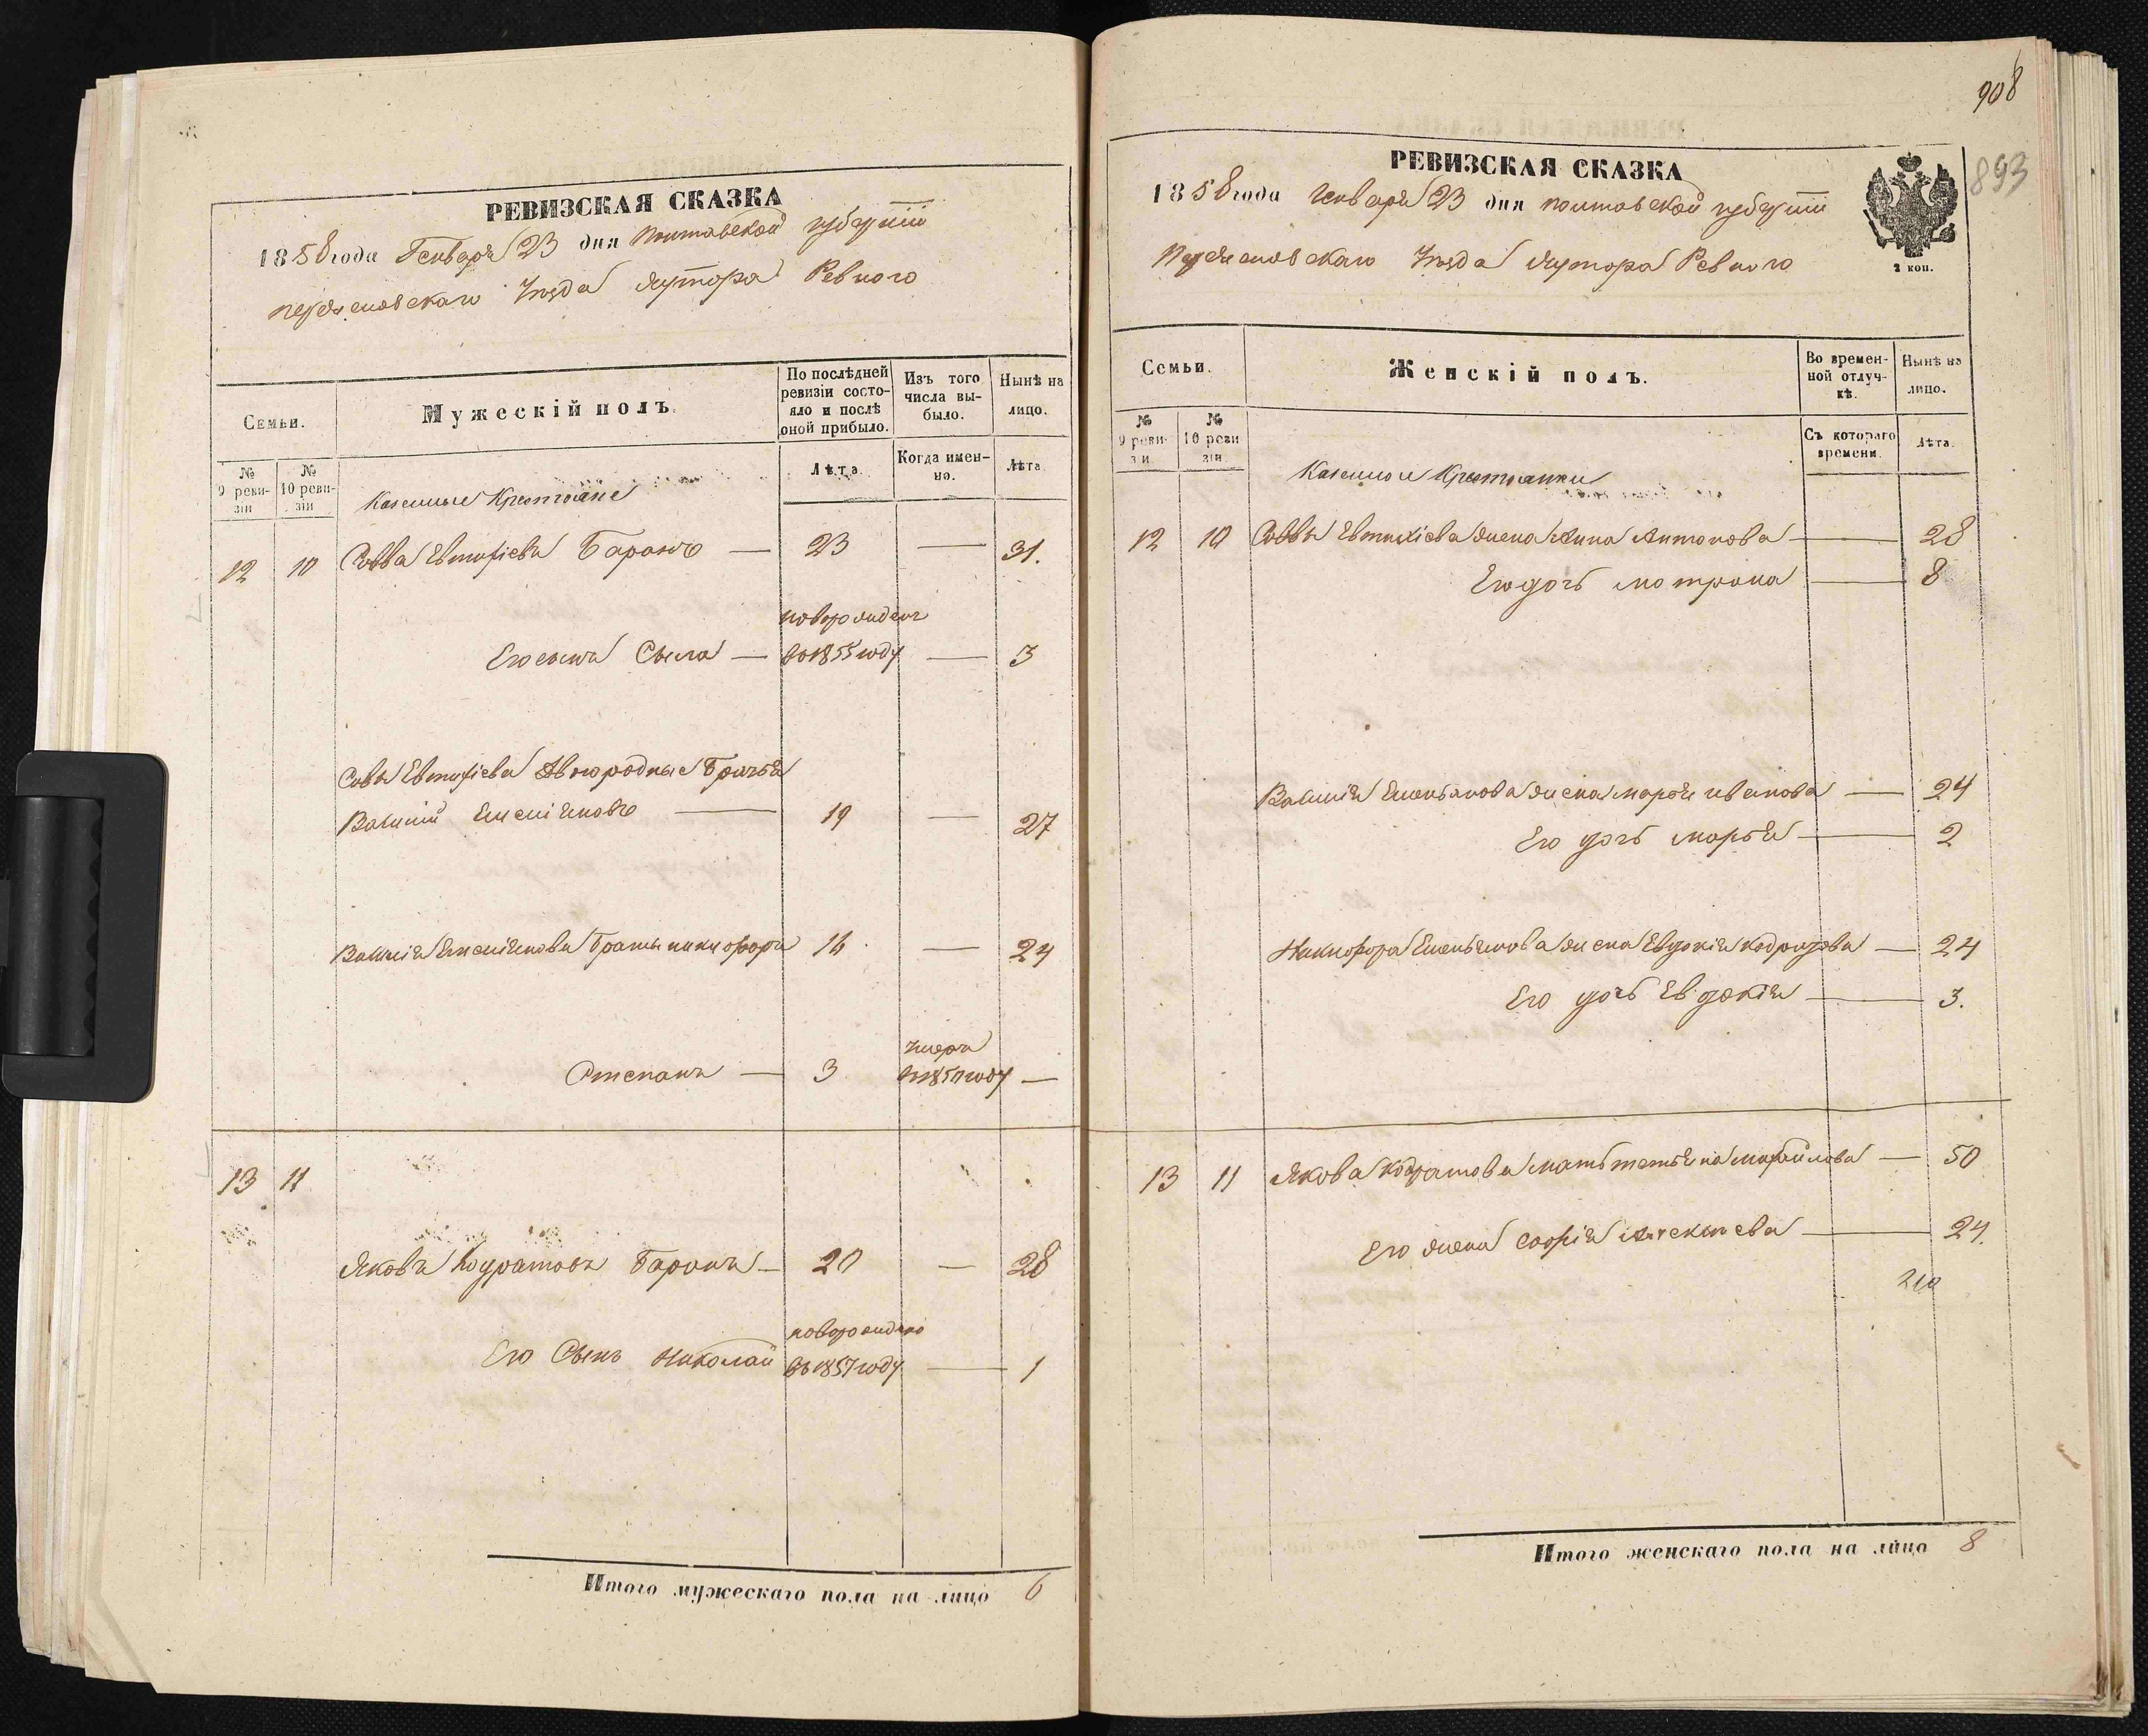 РЕВИЗСКАЯ СКАЗКА
1858 года Генваря 23 дня Полтавской губерніи
Переяславскаго Уезда хутора Ревного
Семьи.
Мужескій полъ.
По послѣдней ревизіи состояло и послѣ оной прибыло.
Изъ того числа выбыло.
Нынѣ на лицо.
№ 9 ревизіи
№ 10 ревизіи
Лѣта.
Когда именно.
Лѣта
Казенные Крестьяне
12 10 Савва Евтихіевъ Баранъ — 23 — 31.
новорожденъ
Его сынъ Сыла — въ 1855 году — 3
Савы Евтихіева Двоюродные Братья
Василій Емеліяновъ — 19 — 27
Василія Емеліянова Братья никифоръ 16 — 24
умеръ
Степанъ — 3 въ 1850 году —
13 11
Яковъ Кодратовъ Баранъ — 20 — 28
новорожденъ
Его Сынъ Николай въ 1857 году — 1
Итого мужескаго пола на лицо 6
908
893
РЕВИЗСКАЯ СКАЗКА
1858 года Генваря 23 дня полтавской губерніи
Переяславскаго Уезда хутора Ревного
2 коп.
Семьи.
Женскій полъ.
Во временной отлучкѣ.
Нынѣ на лицо.
№ 9 ревизіи
№ 10 ревизіи
Съ котораго времени.
Лѣта.
Казенные Крестьянки
12 10 Саввы Евтихіева жена Анна Антонова — 28
Его дочь мотрона — 8
Василія Емельянова жена марья иванова — 24
Его дочь марья — 2
Никифора Емельянова жена Евдокія кодратова — 24
Его дочь Евдокія — 3.
13 11 Якова Кодратова мать татьяна михайлова — 50
Его жена софія Алексеева — 24
Итого женскаго пола на лицо 8